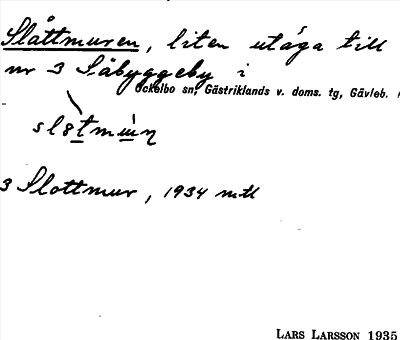 Slåttmuren, liten utäga till
nr 3 Såbyggeby i
Ockelbo sn, Gästriklands v. doms. tg, Gävleb.
3 Slottmur, 1934 mtl
LARS LARSSON 1935